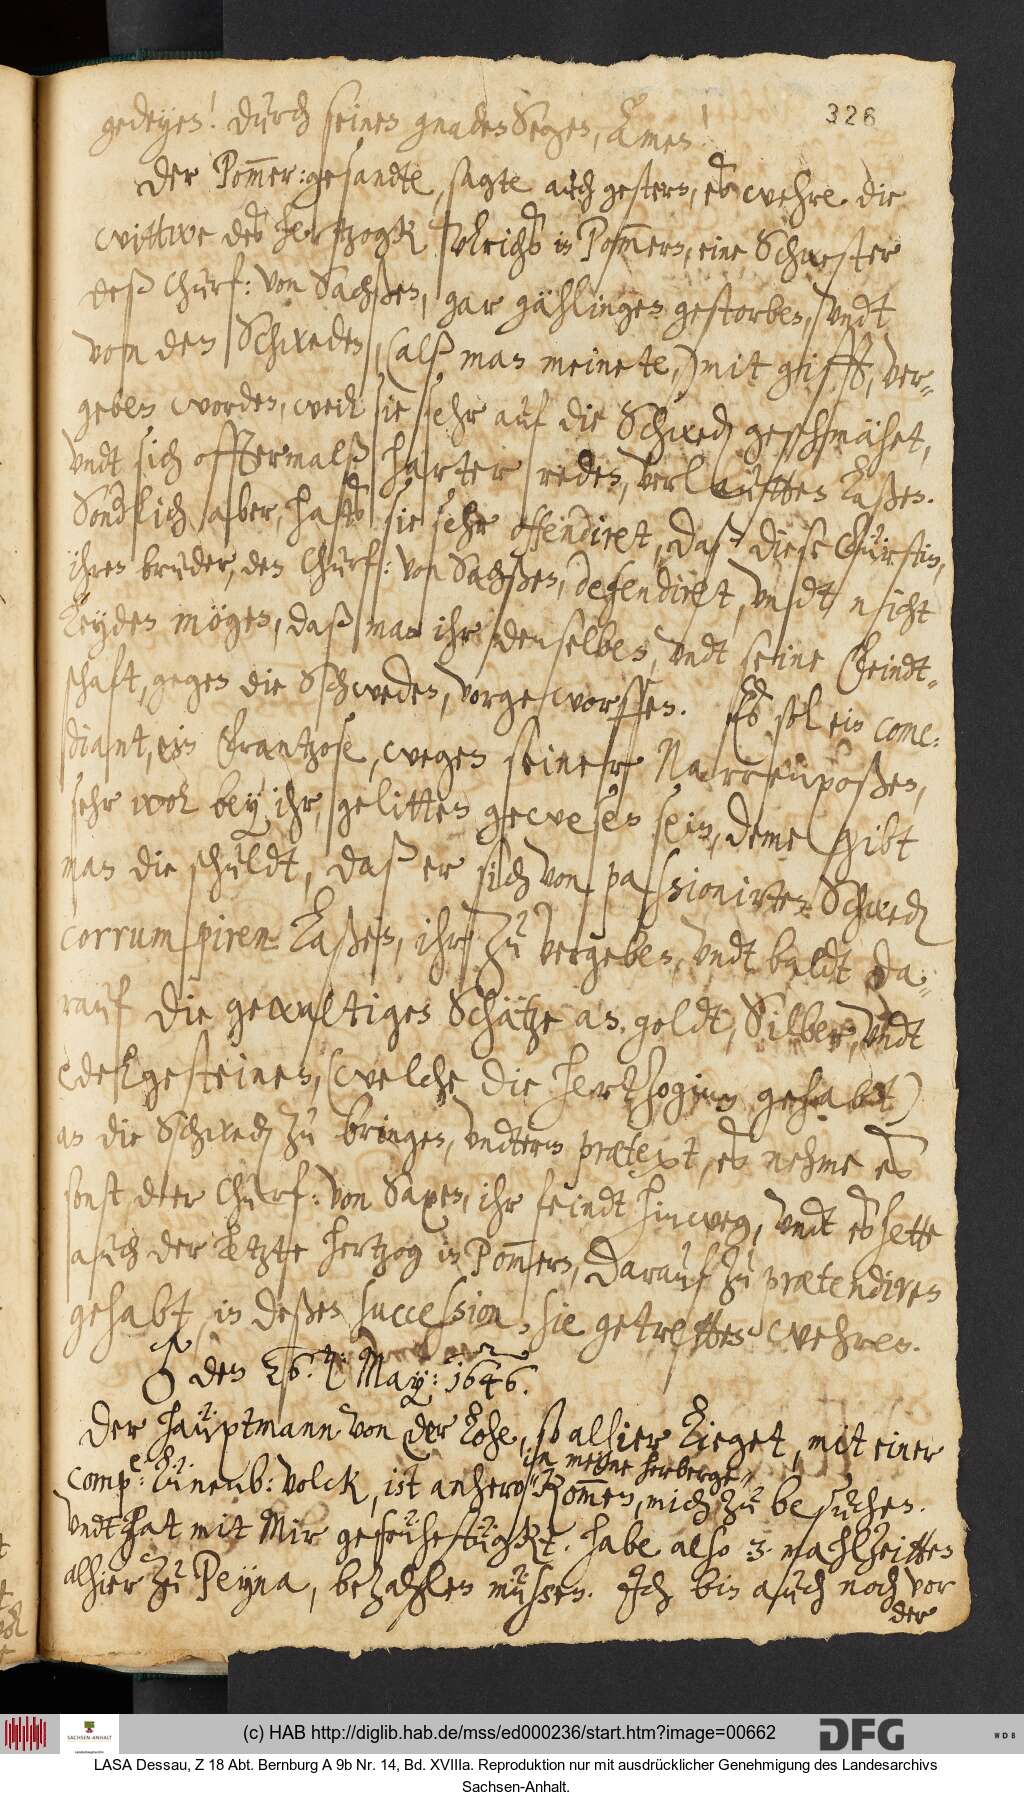 326
gedeyen! durch seinen gnaden Segen, Amen!
Der Pom̅er: gesandte, sagte auch gestern, es wehre die
wittwe des Hertzogk Ulrichs in Pom̅ern, eine Schwester
deß Churf: von Sachßen, gar gählingen gestorben, undt
von den Schweden, (alß man meinete,) mit gifft, ver-
geben worden, weil sie sehr auf die Schwed geschmähet,
undt sich offtermalß harter reden, verlautten laßen.
Sondlich aber, hafts sie sehr offendiret, daß diese Fürstin,
ihren bruder, den Churf: von Sachßen, defendiret, undt nicht
leyden mögen, daß man ihr denselben, undt seine Feindt-
schaft, gegen die Schweden, vorgeworffen. Es sol ein come-
diant, ein Frantzose, wegen seiner Narrenpoßen,
sehr wol bey ihr, gelitten gewesen sein, deme gibt
man die schuldt, daß er sich von passionirten Schwed
corrumpiren laßen, ihr zu vergeben, undt baldt da-
rauf die gewaltigen Schätze an goldt, Silber, undt
edelgesteinen, (welche die Hertzoginn gehabt)
an die Schwed zu bringen, undterm prætext, es nehme es
sonst der Churf: von Saxen, ihr feindt hinweg, undt es hette
auch der letzte hertzog in Pom̅ern, darauf zu prætendiren
gehabt, in deßen succession, sie getretten wehren.
♂ den 26. May: 1646.
Der Hauptmann von der Lohe, so alhier lieget, mit einer
comp: Lüneub: volck, ist anhero
in meine herberge
kom̅en, mich zu besuchen.
undt hat mit Mir gefrühestückt. habe also 3 mahlzeitten
alhier zu Peyna, bezahlen müssen. Ich bin auch noch vor
der
(c) HAB http://diglib.hab.de/mss/ed000236/start.htm?image=00662
SACHSEN-ANHALT
DFG
WDB
LASA Dessau, Z 18 Abt. Bernburg A 9b Nr. 14, Bd. XVIIIa. Reproduktion nur mit ausdrücklicher Genehmigung des Landesarchivs
Sachsen-Anhalt.